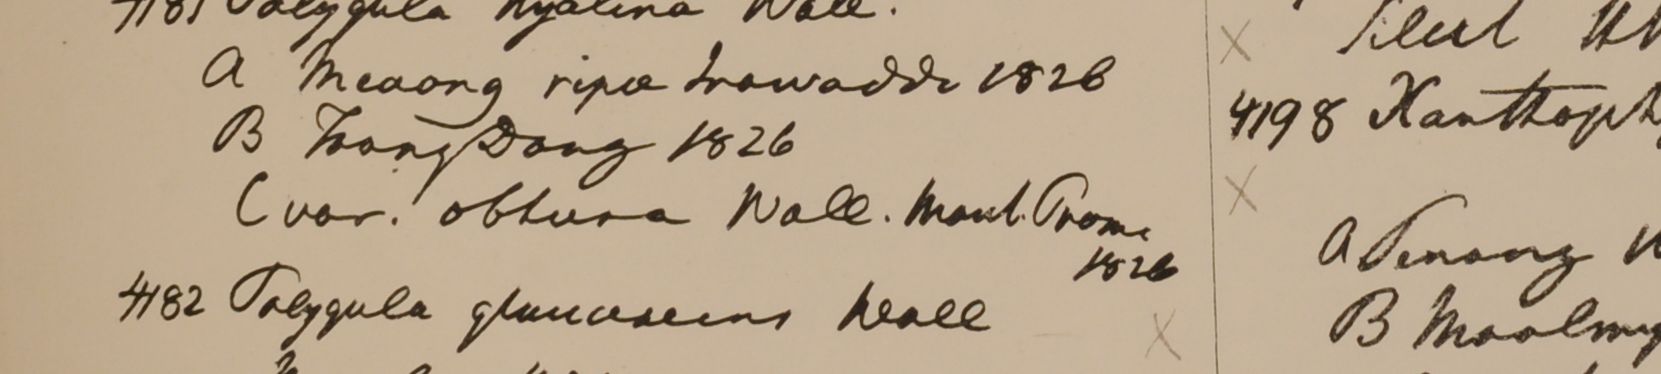 4181 Polygala hyalina Wall.
A Meaong ripæ Irawaddi 1826
B Toong Dong 1826
C var. obtusa Wall. Mont. Prome
1826
4182 Polygala glaucescens Wall
Silul
4198 Xanthoph
A Penang
B Moolmy